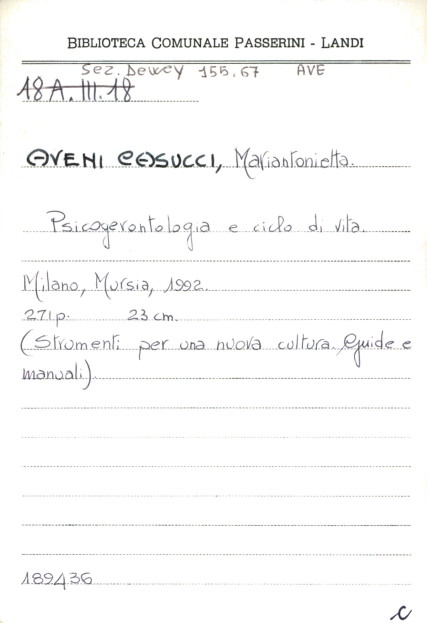 BIBLIOTECA COMUNALE PASSERINI - LANDI
Sez. Dewey 155.67 AVE
18 A. III. 18
AVENI CASUCCI, Mariantonietta.
Psicogerontologia e ciclo di vita.
Milano, Mursia, 1992.
271 p. 23 cm.
(Strumenti per una nuova cultura. Guide e
manuali).
189436
c